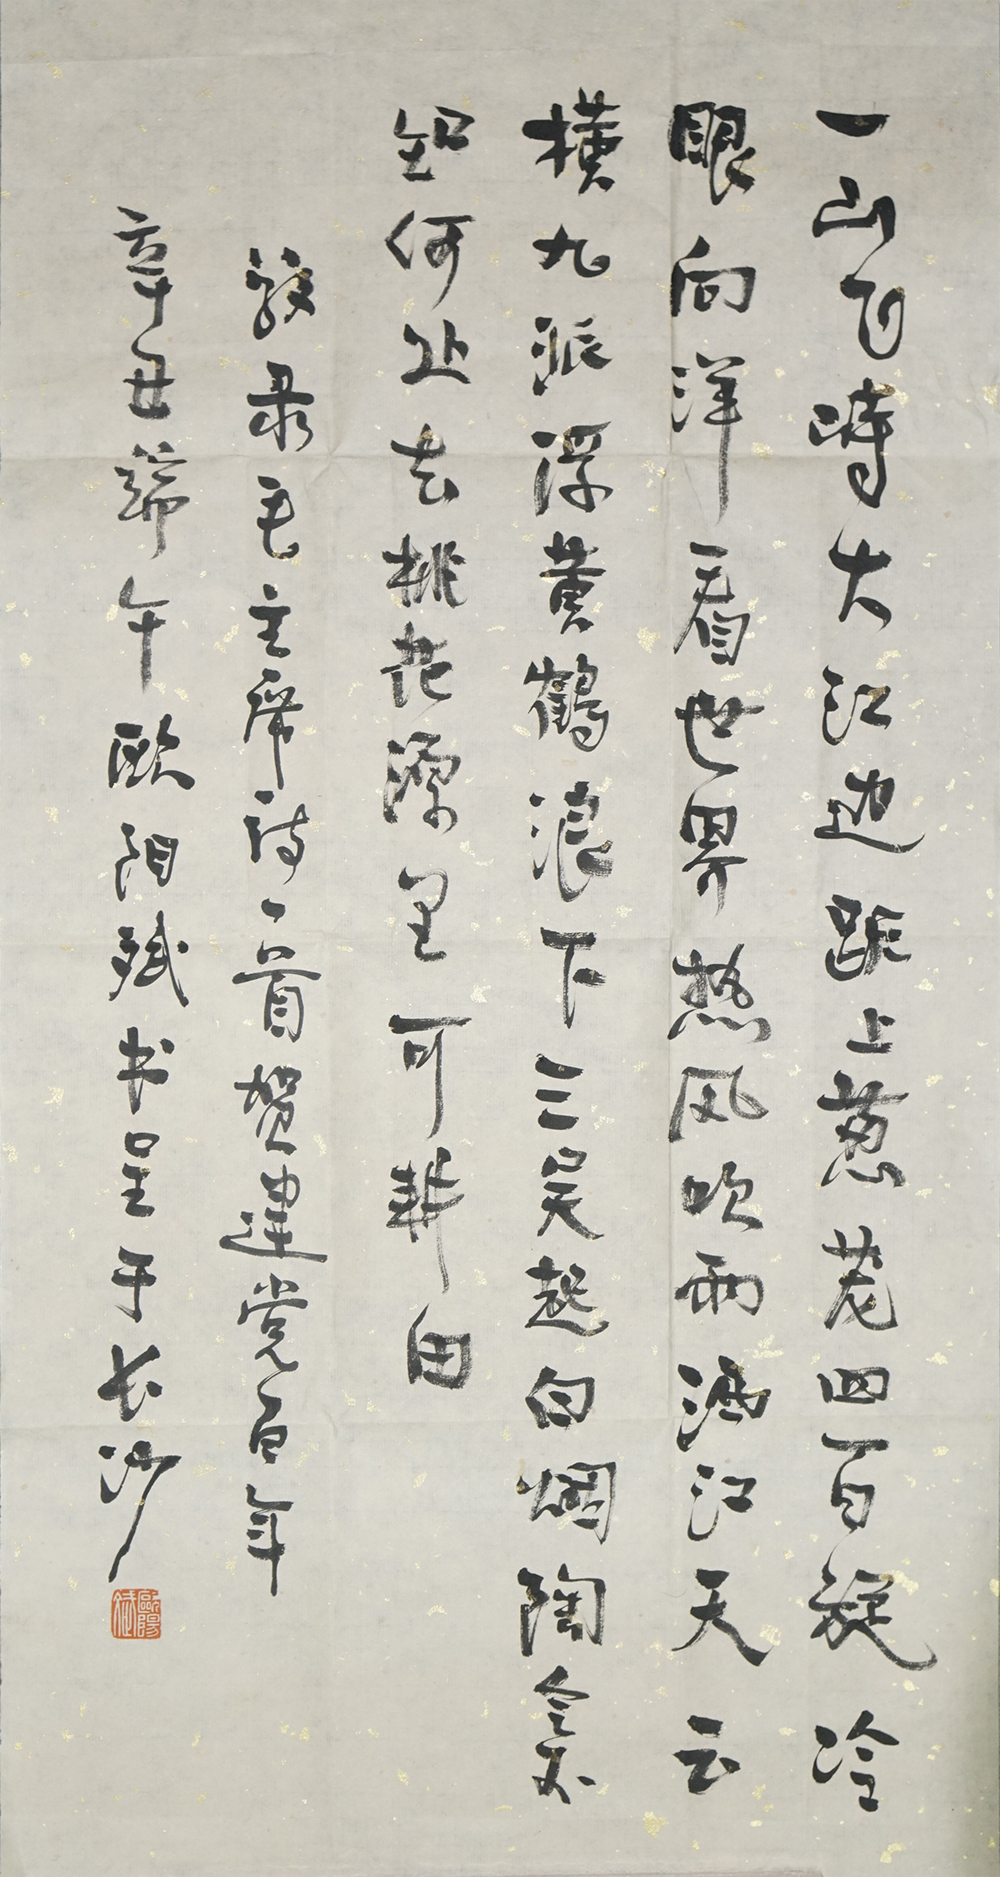 一山飞峙大江边跃上葱茏四百旋冷
眼向洋看世界热风吹雨洒江天云
横九派浮黄鹤浪下三吴起白烟陶令不
知何处去桃花源里可耕田
敬录毛主席诗一首贺建党百年
辛丑端午欧阳斌书呈于长沙
歐陽斌